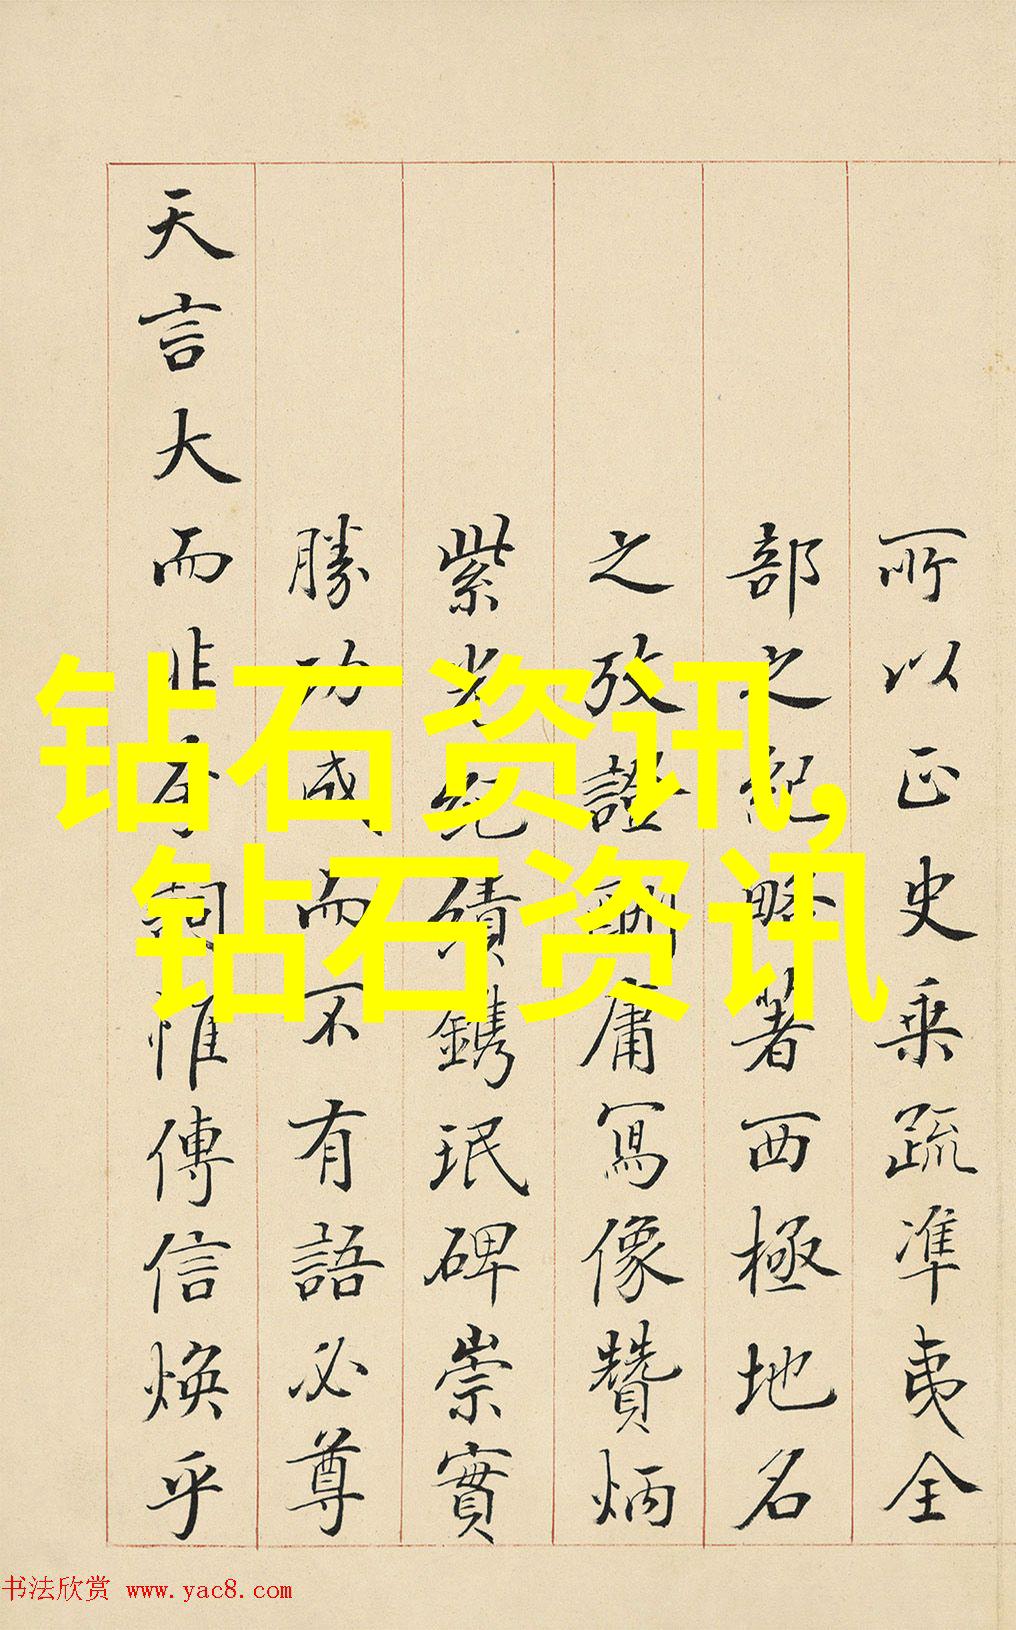 所以正史乘疏準夷全
部之紀略著西極地名
之攷證酬庸寫像贊炳
紫光紀績鐫珉碑崇實
勝功成而不有語必尊
天言大而非夸詞惟傳信煥乎
钻石资讯,
钻石资讯
书法欣赏 www.yac8.com